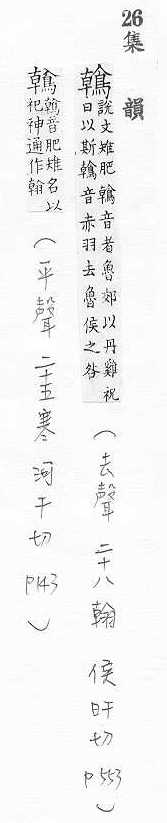 26
集韻
鶾說文雉肥鶾音者魯郊以丹雞祝曰以斯鶾音赤羽去魯侯之咎(去聲 二十八翰 侯旰切 p553)
鶾鶾音肥雉名以祀神通作翰(平聲 二十五寒 河干切 p143)